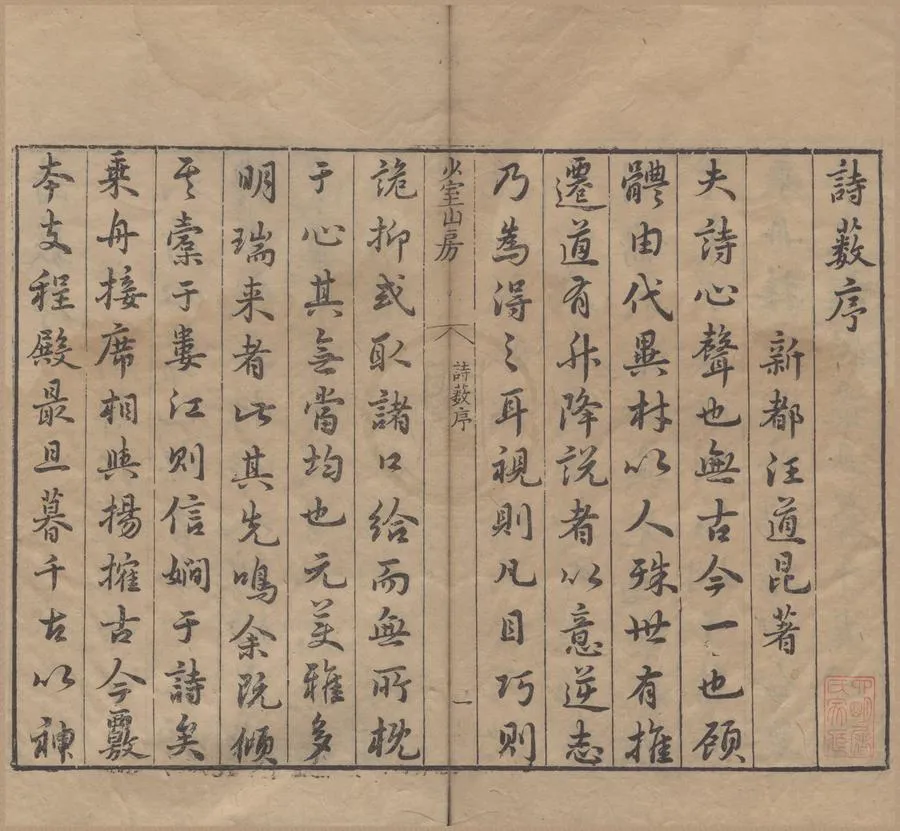 詩藪序
新都汪道昆著
夫詩心聲也無古今一也顧
體由代異材以人殊世有推
遷道有升降說者以意逆志
乃為得之耳視則凡目巧則
少室山房
詩藪序
一
詭抑或取諸口給而無所概
于心其無當均也元美雅多
明瑞來者此其先鳴余既傾
其橐于婁江則信嫺于詩矣
乘舟接席相與揚搉古今覈
本支程殿最旦暮千古以神